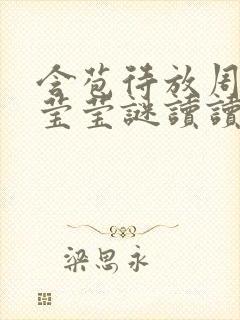 含苞待放周
莹莹謎讀讀
梁思永